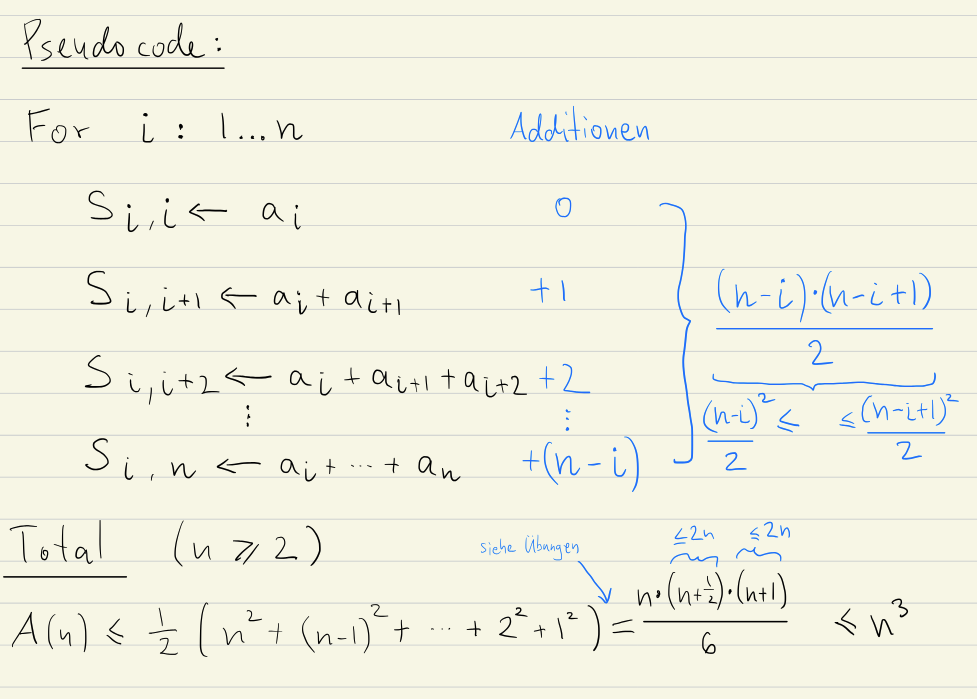 Pseudocode:
For i : 1...n Additionen
S_{i,i} ← a_i 0
S_{i,i+1} ← a_i + a_{i+1} +1
S_{i,i+2} ← a_i + a_{i+1} + a_{i+2} +2
⋮ ⋮
S_{i,n} ← a_i + ... + a_n +(n-i)
(n-i)·(n-i+1)
2
(n-i)²/2 ≤ ≤ (n-i+1)²/2
Total (n ≥ 2)
siehe Übungen ≤2n ≤2n
A(n) ≤ 1/2 (n² + (n-1)² + ... + 2² + 1²) = n·(n+1/2)·(n+1)/6 ≤ n³